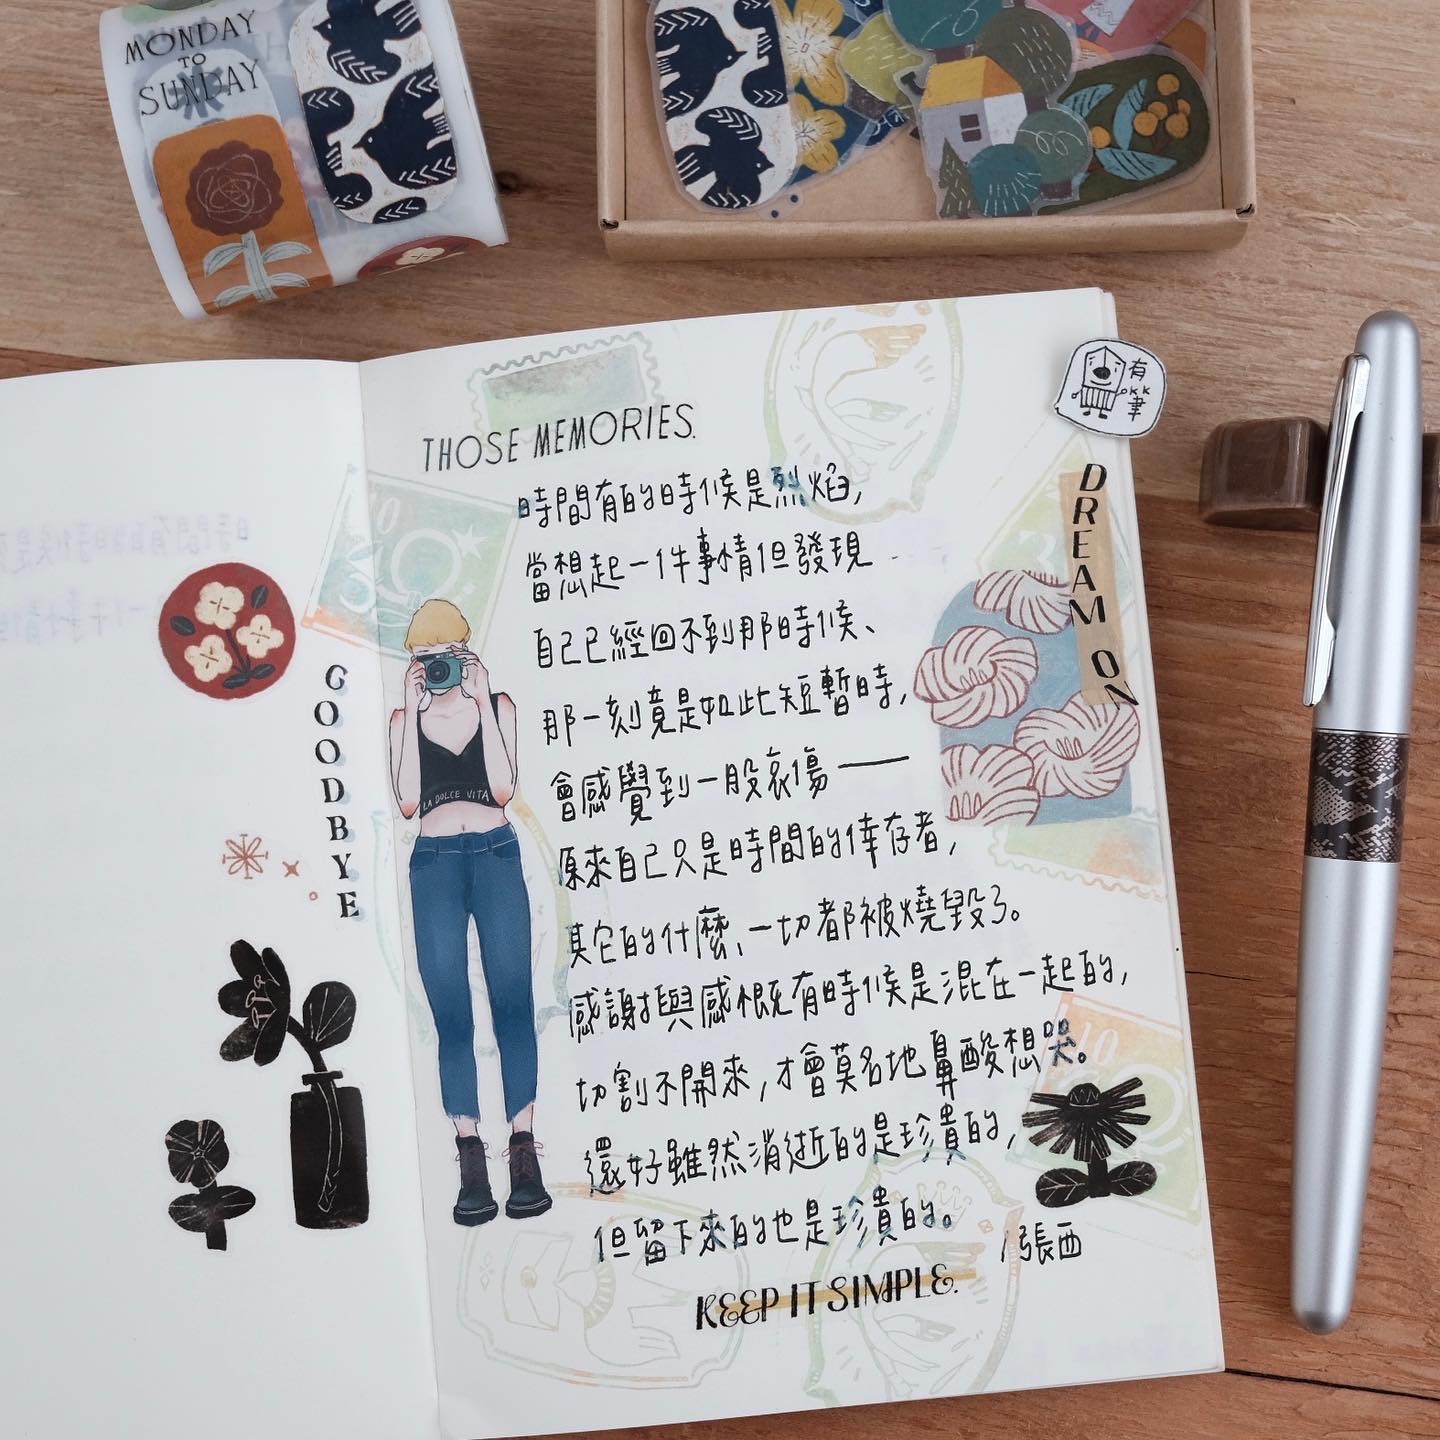 MONDAY
TO
SUNDAY
THOSE MEMORIES.
時間有的時候是烈焰,
當想起一件事情但發現
自己已經回不到那時候、
那一刻竟是如此短暫時,
會感覺到一股哀傷——
原來自己只是時間的倖存者,
其它的什麼、一切都被燒毀了。
感謝與感慨有時候是混在一起的,
切割不開來,才會莫名地鼻酸想哭。
還好雖然消逝的是珍貴的,
但留下來的也是珍貴的。
/張西
KEEP IT SIMPLE.
GOODBYE
LA DOLCE VITA
DREAM ON
有
KK
筆